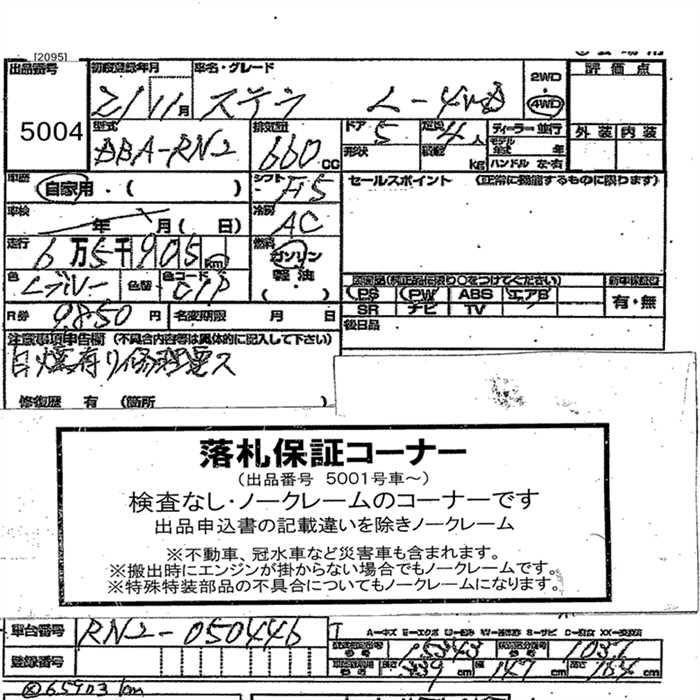 [2095]
出品番号 初度登録年月 車名・グレード 2WD 評価点
21 11月 ステラ L-4WD 4WD
5004 型式 排気量 ドア 定員 ディーラー 並行 外装 内装
DBA-RN2 660 CC 5 4人 モデル年式 年
形状 積載 kg ハンドル 左・右
車歴 自家用・( ) シフト セールスポイント (正常に機能するものに限ります)
車検 年 月( 日) 冷房 AC
走行 6万5千905 km 燃料 ガソリン 軽油・( )
色 Lブルー 色替 色コード 純正品(純正品に限り○をつけてください) 新車保証書
PS PW ABS エアB 有・無
R券 9850 円 名変期限 月 日 SR ナビ TV
後日品
注意事項申告欄 (不具合内容等は具体的に記入して下さい)
修復歴 有 (箇所 )
落札保証コーナー
(出品番号 5001号車~)
検査なし・ノークレームのコーナーです
出品申込書の記載違いを除きノークレーム
※不動車、冠水車など災害車も含まれます。
※搬出時にエンジンが掛からない場合でもノークレームです。
※特殊特装部品の不具合についてもノークレームになります。
車台番号 RN2-050446
登録番号 長さ 339 cm 幅 147 cm 高さ cm
65903 km